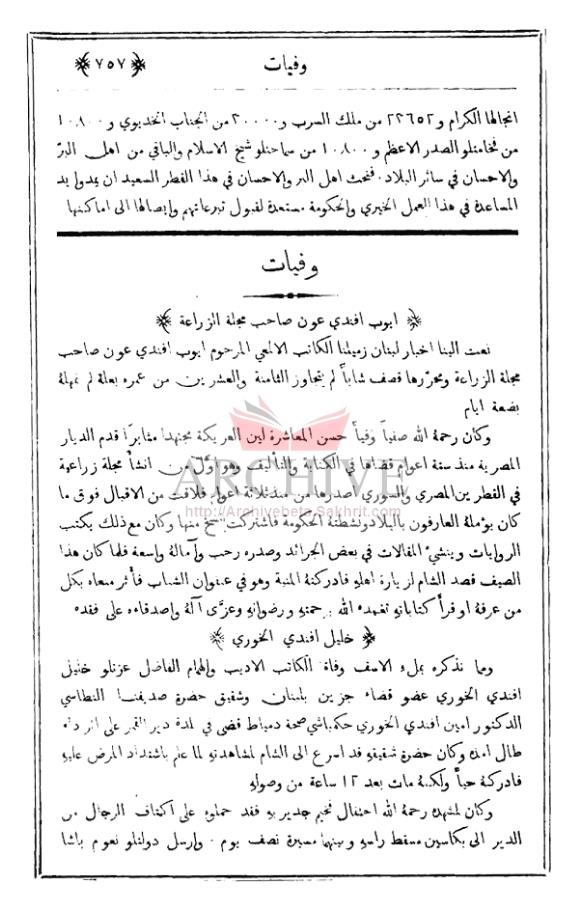 وفيات
﴿٧٥٧﴾
انجالها الكرام و٢٢٦٥٢ من ملك السرب و٢٠٠٠٠ من الجناب الخديوي و ١٠٨٠٠
من فخامتلو الصدر الاعظم و ١٠٨٠٠ من سماحتلو شيخ الاسلام والباقي من اهل البر
والاحسان في سائر البلاد. فنحث اهل البر والاحسان في هذا القطر السعيد ان يمدوا يد
المساعدة في هذا العمل الخيري والحكومة مستعدة لقبول تبرعاتهم وإيصالها الى اماكنها
وفيات
﴿ ايوب افندي عون صاحب مجلة الزراعة ﴾
نعت الينا اخبار لبنان زميلنا الكاتب الالمعي المرحوم ايوب افندي عون صاحب
مجلة الزراعة ومحررها قصف شاباً لم يتجاوز الثامنة والعشرين من عمره بعلة لم تمهله
بضعة ايام
وكان رحمهُ الله صفياً وفياً حسن المعاشرة لين العريكة مجتهدا مثابرًا قدم الديار
المصرية منذ ستة اعوام قضاها في الكتابة والتأليف وهو اوّل من انشأ مجلة زراعية
في القطرين المصري والسوري اصدرها من منذ ثلاثة اعوام فلاقت من الاقبال فوق ما
كان يؤملهُ العارفون بالبلاد ونشطتهُ الحكومة فاشتركت نسخ منها وكان مع ذلك يكتب
الروايات وينشئُ المقالات في بعض الجرائد وصدره رحب وآمالهُ واسعة فلما كان هذا
الصيف قصد الشام لزيارة اهلهِ فادركتهُ المنية وهو في عنفوان الشباب فأثر منعاه بكل
من عرفهُ او قرأ كتاباتهِ تغمده الله برحمتهِ ورضوانهِ وعزَّى آلهُ واصدقاءه على فقده
﴿ خليل افندي الخوري ﴾
ومما نذكره بملءِ الاسف وفاة الكاتب الاديب والهمام الفاضل عزتلو خليل
افندي الخوري عضو قضاء جزين بلبنان وشقيق حضرة صديقنا النطاسي
الدكتور امين افندي الخوري حكمباشي صحة دمياط قضى في بلدة دير القمر على اثر داء
طال امده وكان حضرة شقيقهِ قد اسرع الى الشام لمشاهدتهِ لما علم باشتداد المرض عليهِ
فادركهُ حياً ولكنهُ مات بعد ١٢ ساعة من وصولهِ
وكان لمشهده رحمهُ الله احتفال فخيم جدير بهِ فقد حملوه على اكتاف الرجال من
الدير الى بكاسين مسقط راسهِ وبينهما مسيرة نصف يوم. وارسل دولتلو نعوم باشا
ARCHIVE
http://Archivebeta.Sakhrit.com